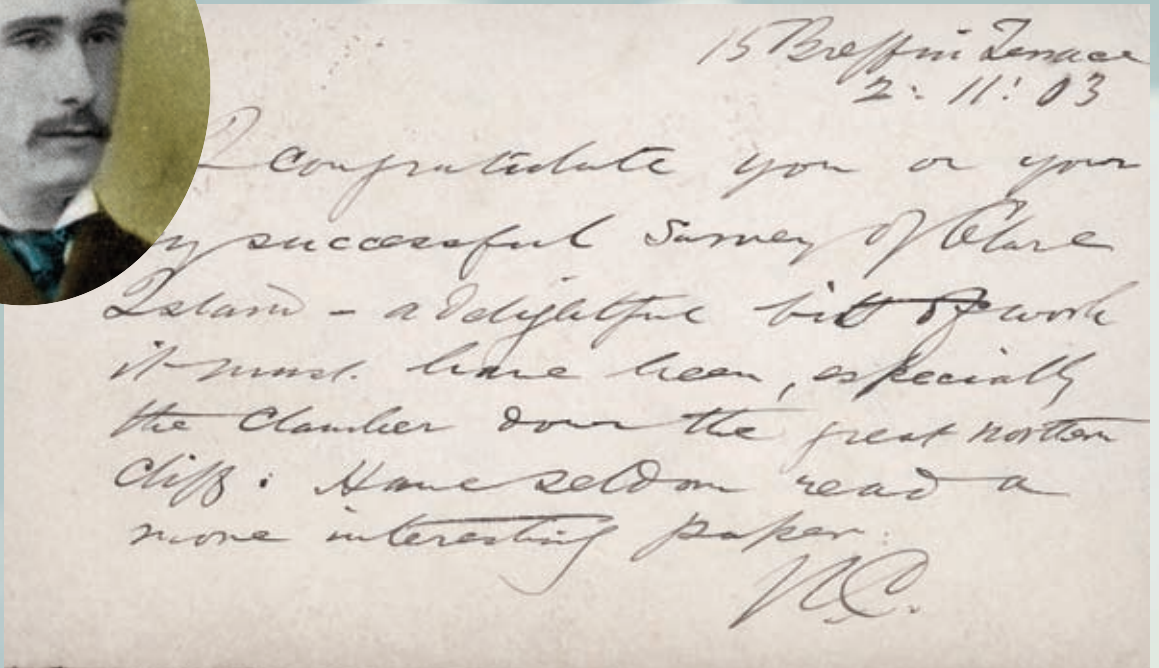 15 Breffni Terrace
2: 11: 03
I congratulate you on your
successful Survey of Clare
Island - a delightful bit of work
it must have been, especially
the clamber down the great northern
cliff: Have seldom read a
more interesting paper.
N.C.